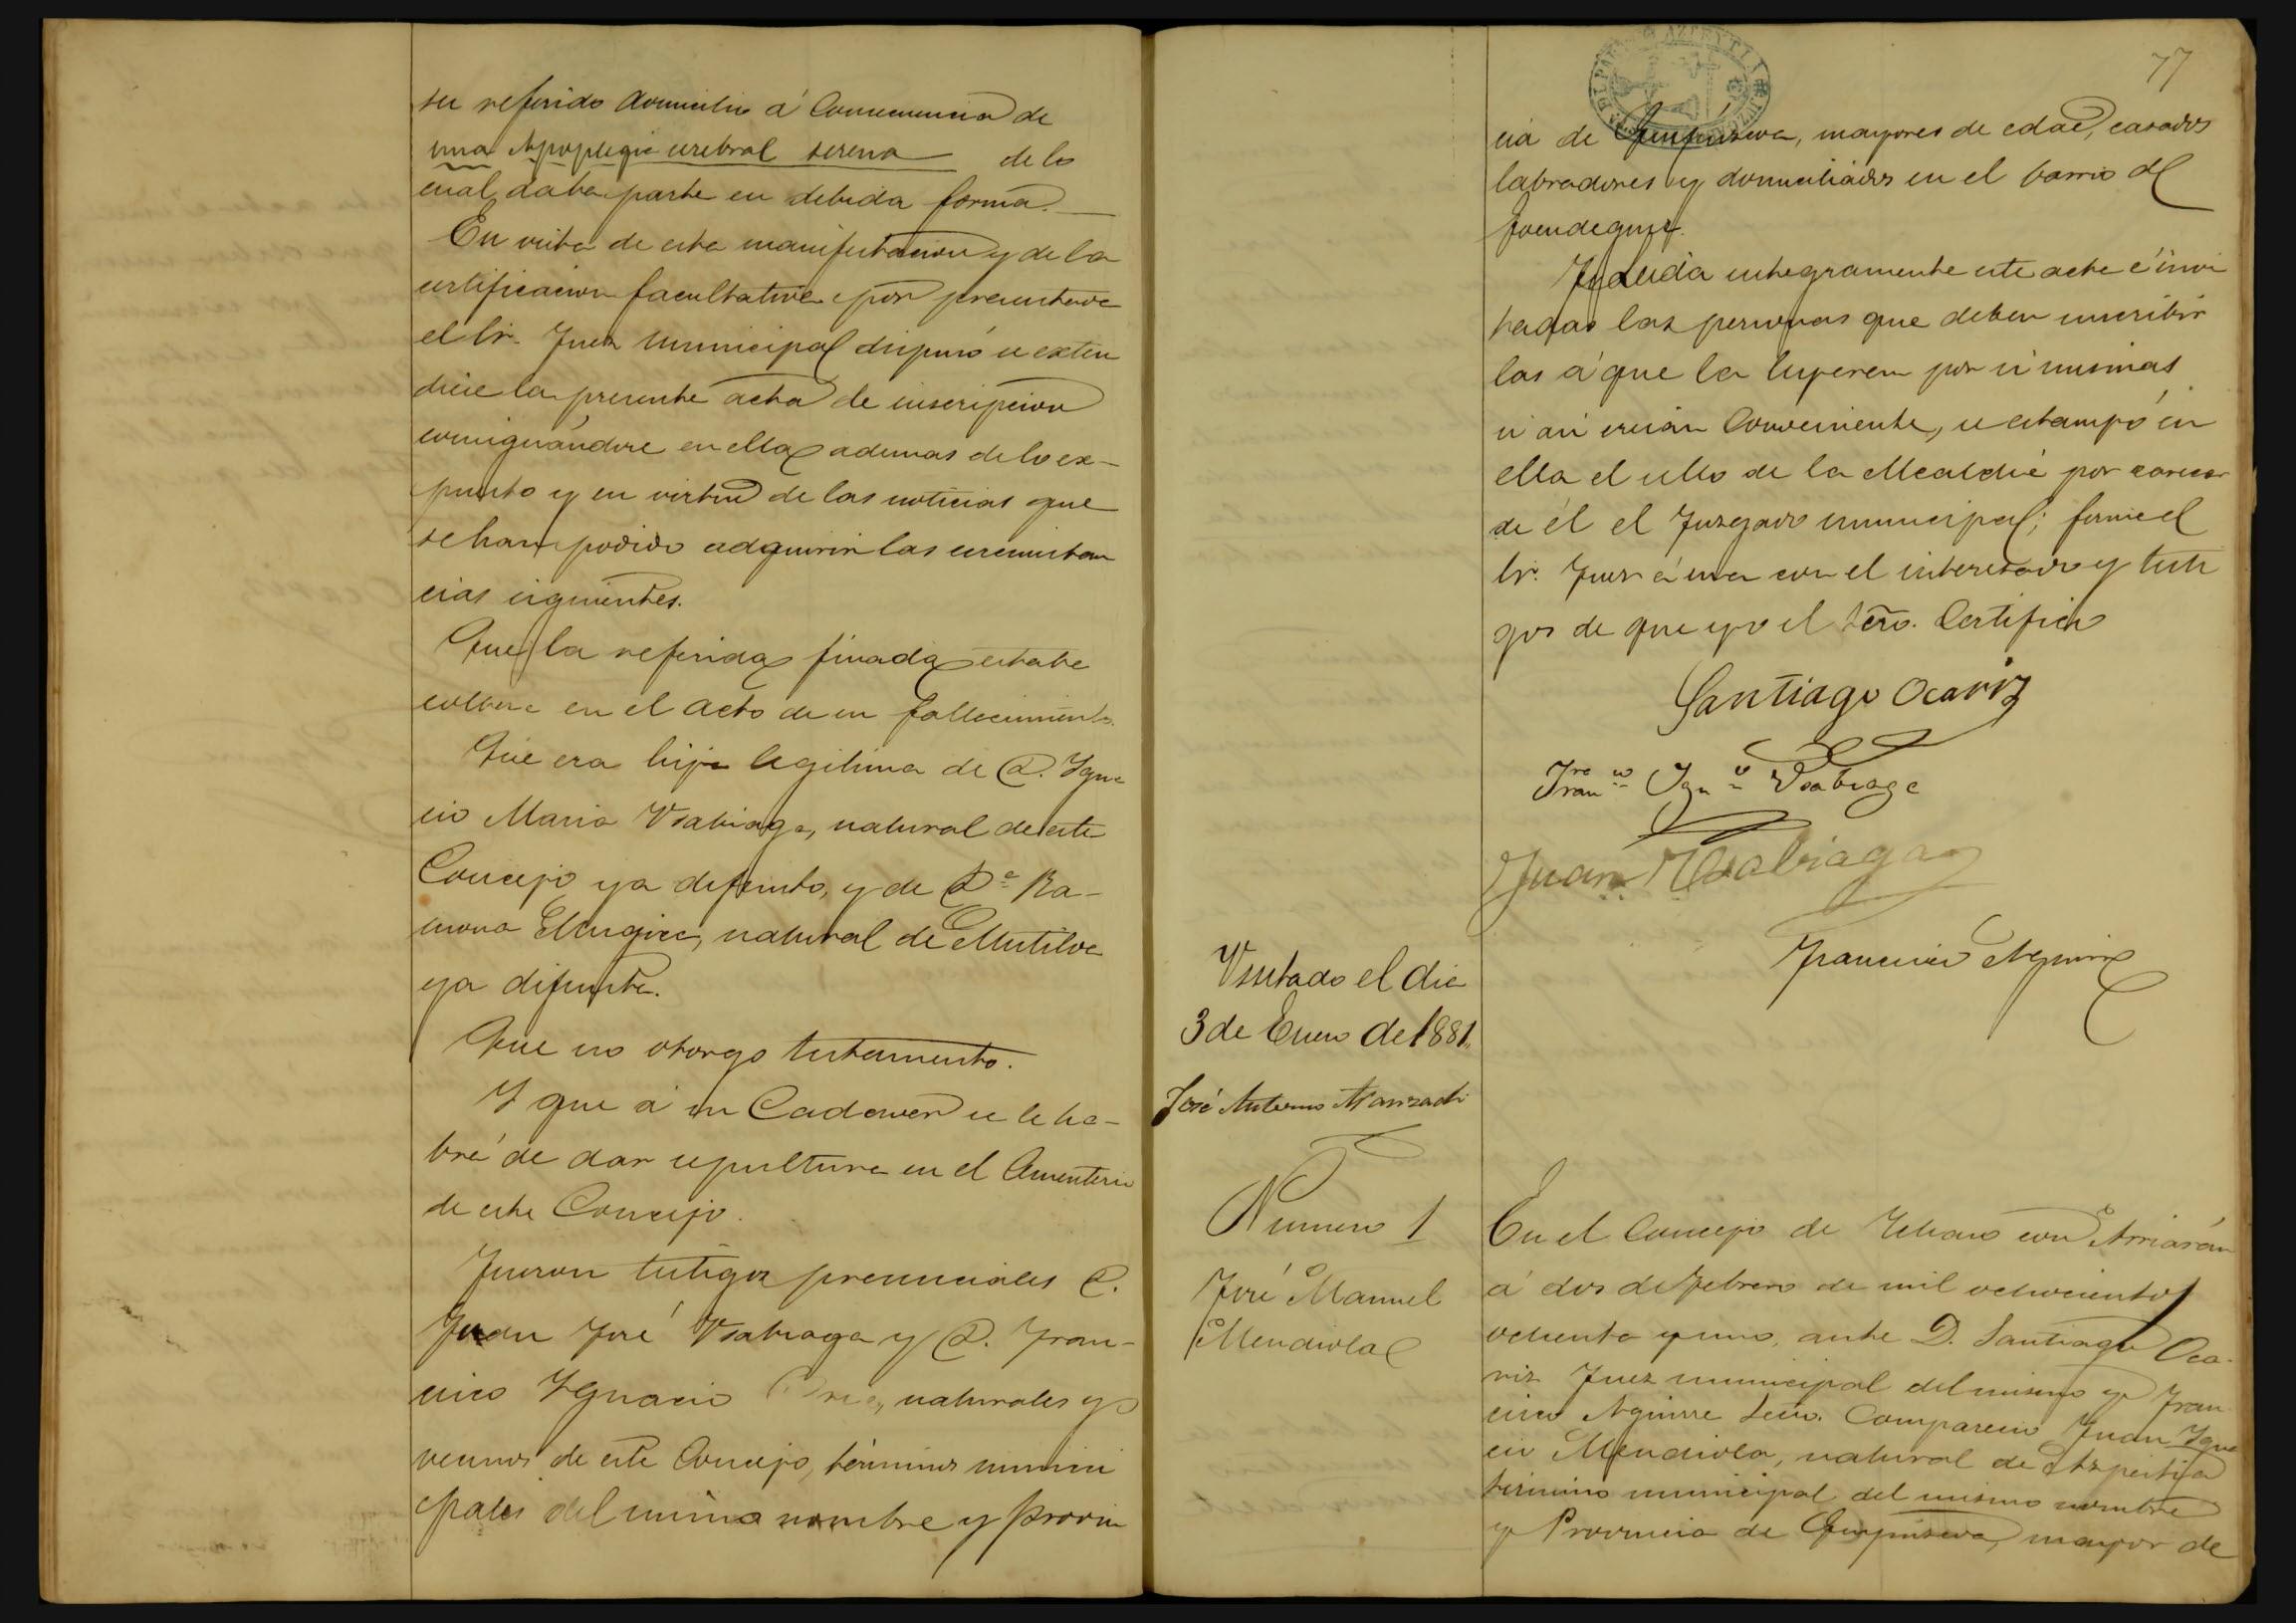 su referido domicilio á consecuencia de
una Apoplegia cerebral serena de lo
cual daba parte en debida forma.
En vista de esta manifestacion y de la
certificacion facultativa por presentada
el Sr. Juez municipal dispuso se exten
diese la presente acta de inscripcion
consignándose en ella ademas de lo ex-
puesto y en virtud de las noticias que
se han podido adquirir las circunstan
cias siguientes.
Que la referida finada estaba
soltera en el acto de su fallecimiento.
Que era hija legitima de D. Igna
cio Maria Usabiaga, natural de este
Concejo ya defunto, y de Dª Ra-
mona natural de Mutiloa
ya difunta.
Que no otorgo testamento.
Y que á su Cadaver se le ha-
brá de dar sepultura en el Cementerio
de este Concejo.
Fueron testigos presenciales D.
Juan José Usabiaga y D. Fran-
cisco Ignacio naturales y
vecinos de este Concejo, términos munici
pales del mismo nombre y provin
77
AZPEITIA
cia de Guipúzcoa, mayores de edad, casados
labradores y domiciliados en el barrio de

Leida integramente este acta é invi
tadas las personas que deben suscribir
las á que la leyeran por si mismas
si asi creian conveniente, se estampó en
ella el sello de la Alcaldia por carecer
de él el Juzgado municipal; firma el
Sr. Juez á una con el interesado y testi
gos de que yo el Scrio. Certifico
Santiago Ocariz
Franco Igno Usabiaga
Juan Usabiaga
Francisco Aguirre
Visitado el dia
3 de Enero de 1881.
José Antonio Aranzadi
Numero 1
José Manuel
Mendiola
En el Concejo de Ichaso con Arriarán
á dos de Febrero de mil ochocientos
ochenta y uno, ante D. Santiago Oca-
riz Juez municipal del mismo y Fran
cisco Aguirre Scrio. Comparecio Juan Igna
cio Mendiola, natural de Azpeitia
término municipal del mismo nombre
y Provincia de Guipúzcoa, mayor de